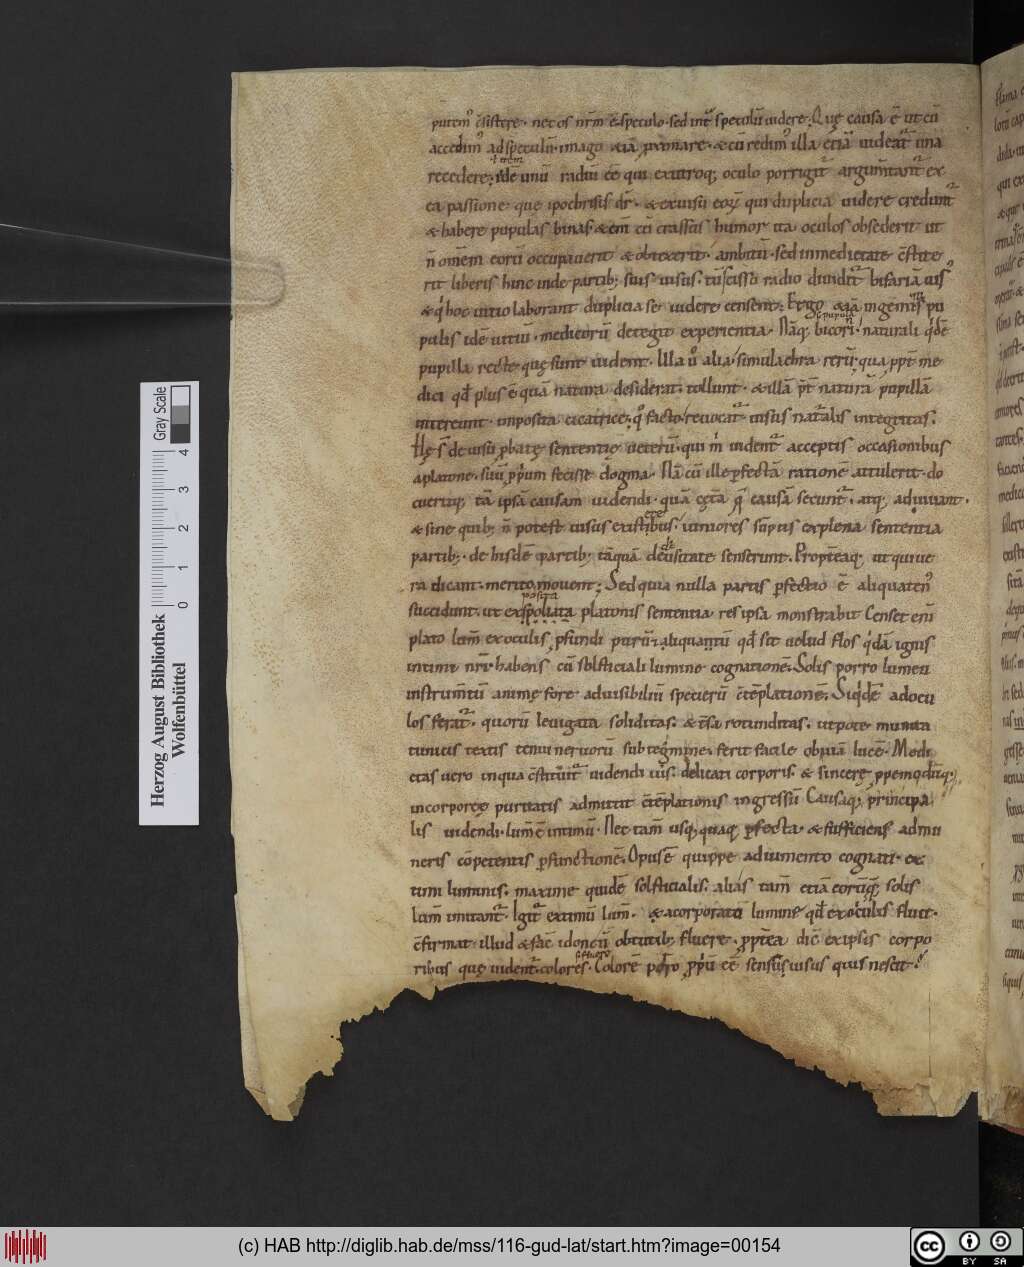 putem᷒ c̄sistere. nec os nr̄m ē speculo. sed int᷑ speculū uidere. Quę causa ē ut cū
accedim᷒ ad speculū. imago &iā proximare. & cū redim᷒ illa &iā uideat᷑ una
recedere. idē unū radiū ēē qui exutroq; oculo porrigit᷑ argum̄tant᷑ ex
ea passione que ipochrisis dr̄. & exuisu eoꝝ qui duplicia uidere credunt᷑
& habere pupulas binas. & em̄ cū crassus humor ita oculos obsederit ut
n̄ om̄em eorū occupauerit & obtexerit. ambitū. sed in medietate c̄stite
rit liberis hinc inde partib; suis uisus. tū scisso radio diuidit᷑ bifariā uis᷒
& q̇ hoc uitio laborant duplicia se uidere censent. Ergo &iā in geminis pu
pulis idē uitiū. medicorū detegit experientia. Nāq; bicori. naturali q̇dē
pupilla recte quę sunt uident. Illa ū alia simulachra rerū. qua ppt̄ me
dici qd̄ plus ē quā natura desiderat. tollunt. & illā p̄t naturā pupillā
intereunt. imposita cicatrice. q̊ facto reuocat᷑ uisus nat᷑alis integritas.
Hę s̄ de uisu probatę sententię ueterū. qui m̄ uident᷑ acceptis occasionibus
a platone. suū ꝓp̄um fecisse dogma. Nā cū ille perfectā rationē attulerit. do
cueritq; tā ipsā causam uidendi. quā c̨tā q̄ causā secunt᷑. atq; adiuuant.
& sine quib; n̄ potest uisus existere. iuniores sūpsis ex plena sententia
partib; de hisdē partib; tāquā de uniuersitate senserunt. Propt̄eaq; ut qui ue
ra dicant. merito mouent. Sed quia nulla partis perfectio ē aliquaten᷒
succidunt. ut exposita platonis sententia res ipsa monstrabit. Censet eni
plato lum̄ ex oculis ꝓfundi purū. aliquantū qd̄ sit uelud flos q̇dā ignis
intimi nr̄i habens cū solsticiali lumine cognationē. Solis porro lumen
instrum̄tū animę fore ad uisibiliū specierū c̄tēplationē. Siq̇dē ad ocu
los ferat᷑. quorū leuigata soliditas. & t̄sa rotunditas. utpote munita
tunicis textis tenui neruorū subtegmine. ferit facile obuiā lucē. Medi
etas uero in qua c̄stituit᷑ uidendi uis. delicati corporis. & sincerę ppemodūq;
incorporeę puritatis admittit c̄tēplationis ingressū. Causaq; principa
lis uidendi. lum̄ ē intimū. Nec tam̄ usq; quaq; perfecta. & sufficiens ad mu
neris cōpetentis perfunctionē. Opus ē quippe adiumento cognati. ex
timi luminis. maxime quidē solsticialis. aliās tam̄ etiā eorūq; solis
lum̄ imitant᷑. Igit᷑ extimū lum̄. & acorporatū lumine qd̄ ex oculis fluit.
c̄firmat illud & facit idoneū obtutib; fluere. ꝓpt̄ea dic̄ ex ipsis corpo
ribus quę uident᷑ colores. Colorē porro ꝓp̄ū ēē sensus uisus quis nescit?
Herzog August Bibliothek
Wolfenbüttel
0 1 2 3 4
Gray Scale
(c) HAB http://diglib.hab.de/mss/116-gud-lat/start.htm?image=00154
cc BY SA